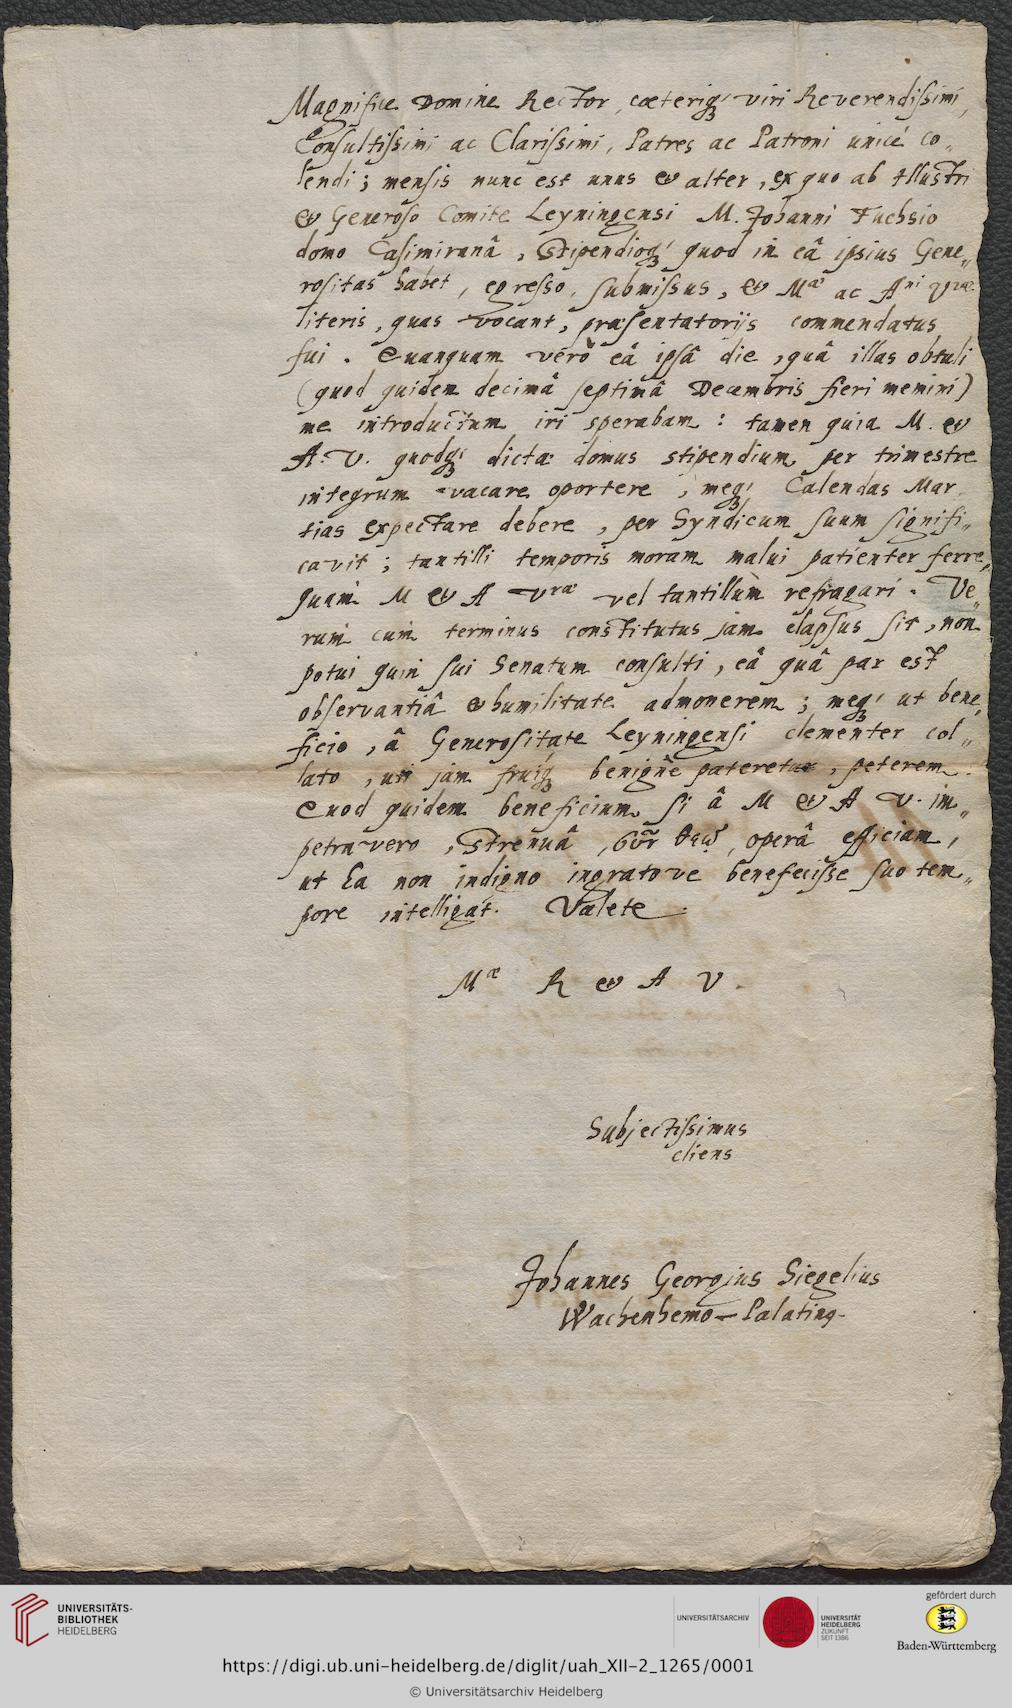 Magnifice Domine Rector, cæteriq; viri Reverendissimi,
Consultissimi ac Clarissimi, Patres ac Patroni unicè co„
lendi; mensis nunc est unus & alter, ex quo ab Illustri
& Generoso Comite Leyningensi M. Johanni Fuchsio
domo Casimiranâ, Stipendioq; quod in eâ ipsius Gene„
rositas habet, egresso, submissus, & Mæ ac Ani Vræ
literis, quas vocant, præsentatorijs commendatus
fui. Quanquam verò eâ ipsâ die, quâ illas obtuli
(quod quidem decimâ septimâ Decembris fieri memini)
me introductum iri sperabam: tamen quia M. &
A. V. quodq; dictæ domus stipendium per trimestre
integrum vacare oportere, meq; Calendas Mar„
tias expectare debere, per Syndicum suum signifi„
cavit; tantilli temporis moram malui patienter ferre,
quàm M & A Vræ vel tantillùm refragari. Ve„
rùm cùm terminus constitutus jam elapsus sit, non
potui quin sui Senatum consulti, eâ quâ par est
observantiâ & humilitate admonerem; meq; ut bene„
ficio, â Generositate Leyningensi clementer col„
lato, uti jam fruiq; benignè pateretur, peterem.
Quod quidem beneficium si â M & A V. im„
petravero, Strenuâ, operâ efficiam,
ut Ea non indigno ingratove benefecisse suo tem„
pore intelligat. Valete.
Mæ R & A V.
Subjectissimus
cliens
Johannes Georgius Siegelius
Wachenhemo-Palatinq.
UNIVERSITÄTS-
BIBLIOTHEK
HEIDELBERG
UNIVERSITÄTSARCHIV
UNIVERSITÄT
HEIDELBERG
ZUKUNFT
SEIT 1386
gefördert durch
Baden-Württemberg
https://digi.ub.uni-heidelberg.de/diglit/uah_XII-2_1265/0001
© Universitätsarchiv Heidelberg